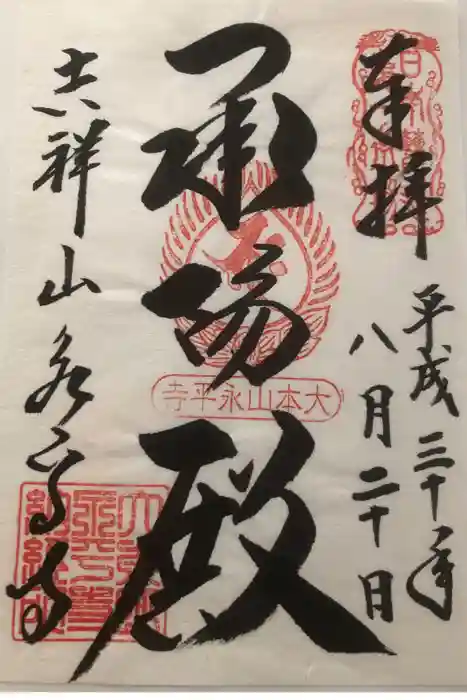 奉拝
平成三十年
八月二十日
承陽殿
大本山永平寺
吉祥山永平寺